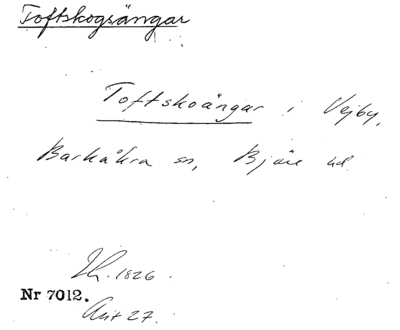 Toftskogsängar
Toftskoängar i Vejby,
Barkåkra sn, Bjäre hd
1826.
Nr 7012.
Akt 27.